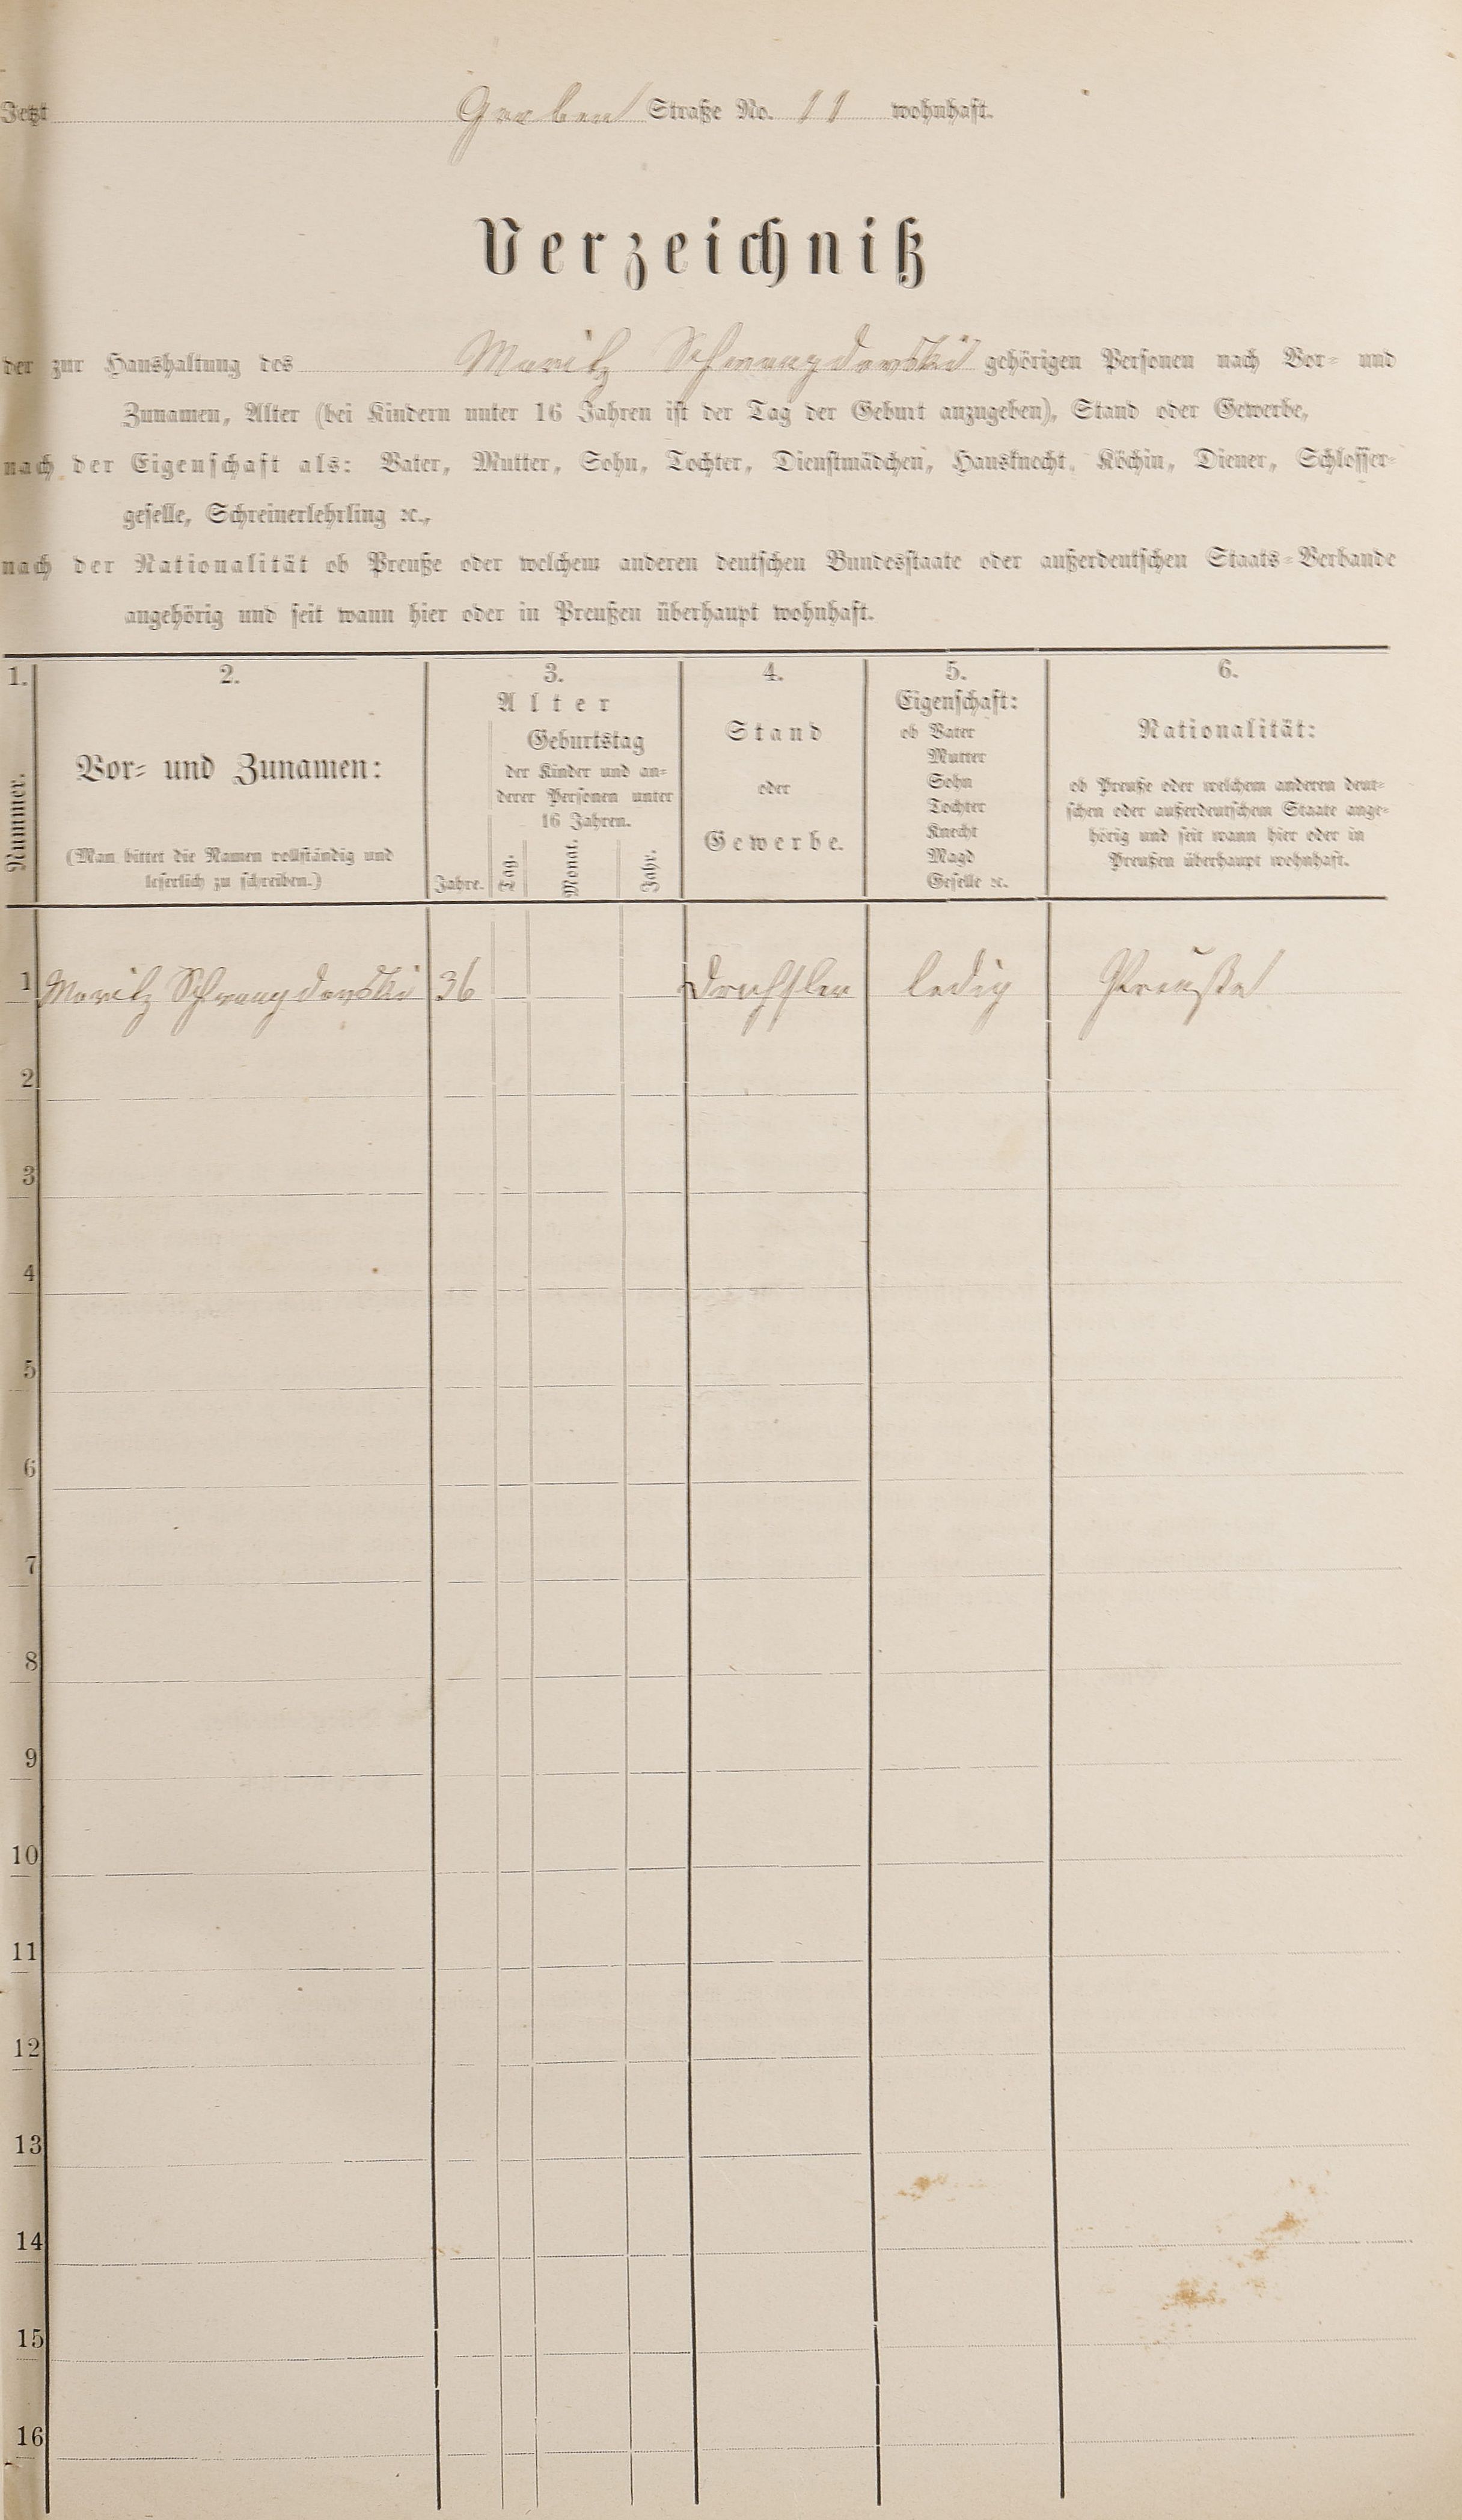 Jetzt Graben Straße No. 11 wohnhaft.
Verzeichniß
der zur Haushaltung des Moritz gehörigen Personen nach Vor- und
Zunamen, Alter (bei Kindern unter 16 Jahren ist der Tag der Geburt anzugeben), Stand oder Gewerbe,
nach der Eigenschaft als: Vater, Mutter, Sohn, Tochter, Dienstmädchen, Hausknecht, Köchin, Diener, Schlosser-
geselle, Schreinerlehrling ꝛc.,
nach der Nationalität ob Preuße oder welchem anderen deutschen Bundesstaate oder außerdeutschen Staats-Verbande
angehörig und seit wann hier oder in Preußen überhaupt wohnhaft.
1.
Nummer.
2.
Vor- und Zunamen:
(Man bittet die Namen vollständig und
leserlich zu schreiben.)
3.
Alter
Jahre.
Geburtstag
der Kinder und an-
derer Personen unter
16 Jahren.
Tag.
Monat.
Jahr.
4.
Stand
oder
Gewerbe.
5.
Eigenschaft:
ob Vater
Mutter
Sohn
Tochter
Knecht
Magd
Geselle ꝛc.
6.
Nationalität:
ob Preuße oder welchem anderen deut-
schen oder außerdeutschem Staate ange-
hörig und seit wann hier oder in
Preußen überhaupt wohnhaft.
1 Moritz 36 Drechsler ledig Preuße
2
3
4
5
6
7
8
9
10
11
12
13
14
15
16